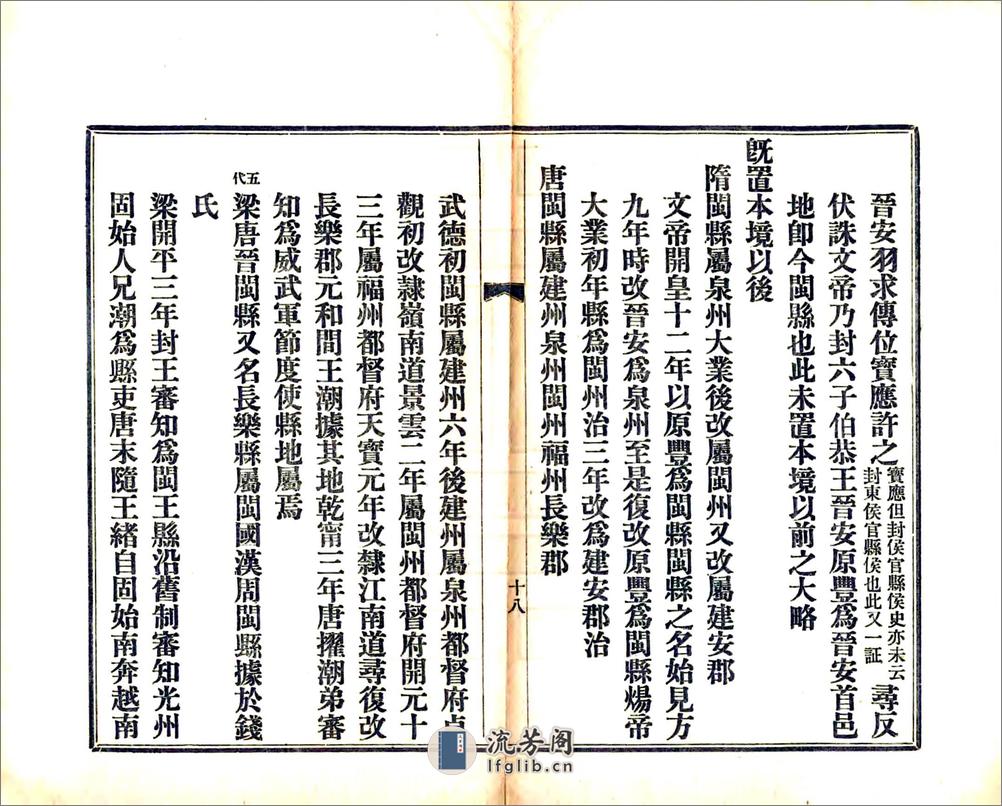 晉安羽求傳位寶應許之寶應但封侯官縣侯史亦未云封東侯官縣侯也此又一証尋反
伏誅文帝乃封六子伯恭王晉安原豐爲晉安首邑
地卽今閩縣也此未置本境以前之大略
旣置本境以後
隋閩縣屬泉州大業後改屬閩州又改屬建安郡
文帝開皇十二年以原豐爲閩縣閩縣之名始見方
九年時改晉安爲泉州至是復改原豐爲閩縣煬帝
大業初年縣爲閩州治三年改爲建安郡治
唐閩縣屬建州泉州閩州福州長樂郡
十八
武德初閩縣屬建州六年後建州屬泉州都督府貞
觀初改隸嶺南道景雲二年屬閩州都督府開元十
三年屬福州都督府天寶元年改隸江南道尋復改
長樂郡元和間王潮據其地乾甯三年唐擢潮弟審
知爲威武軍節度使縣地屬焉
五代梁唐晉閩縣又名長樂縣屬閩國漢周閩縣據於錢
氏
梁開平三年封王審知爲閩王縣沿舊制審知光州
固始人兄潮爲縣吏唐末隨王緒自固始南奔越南
流芳阁
lfglib.cn